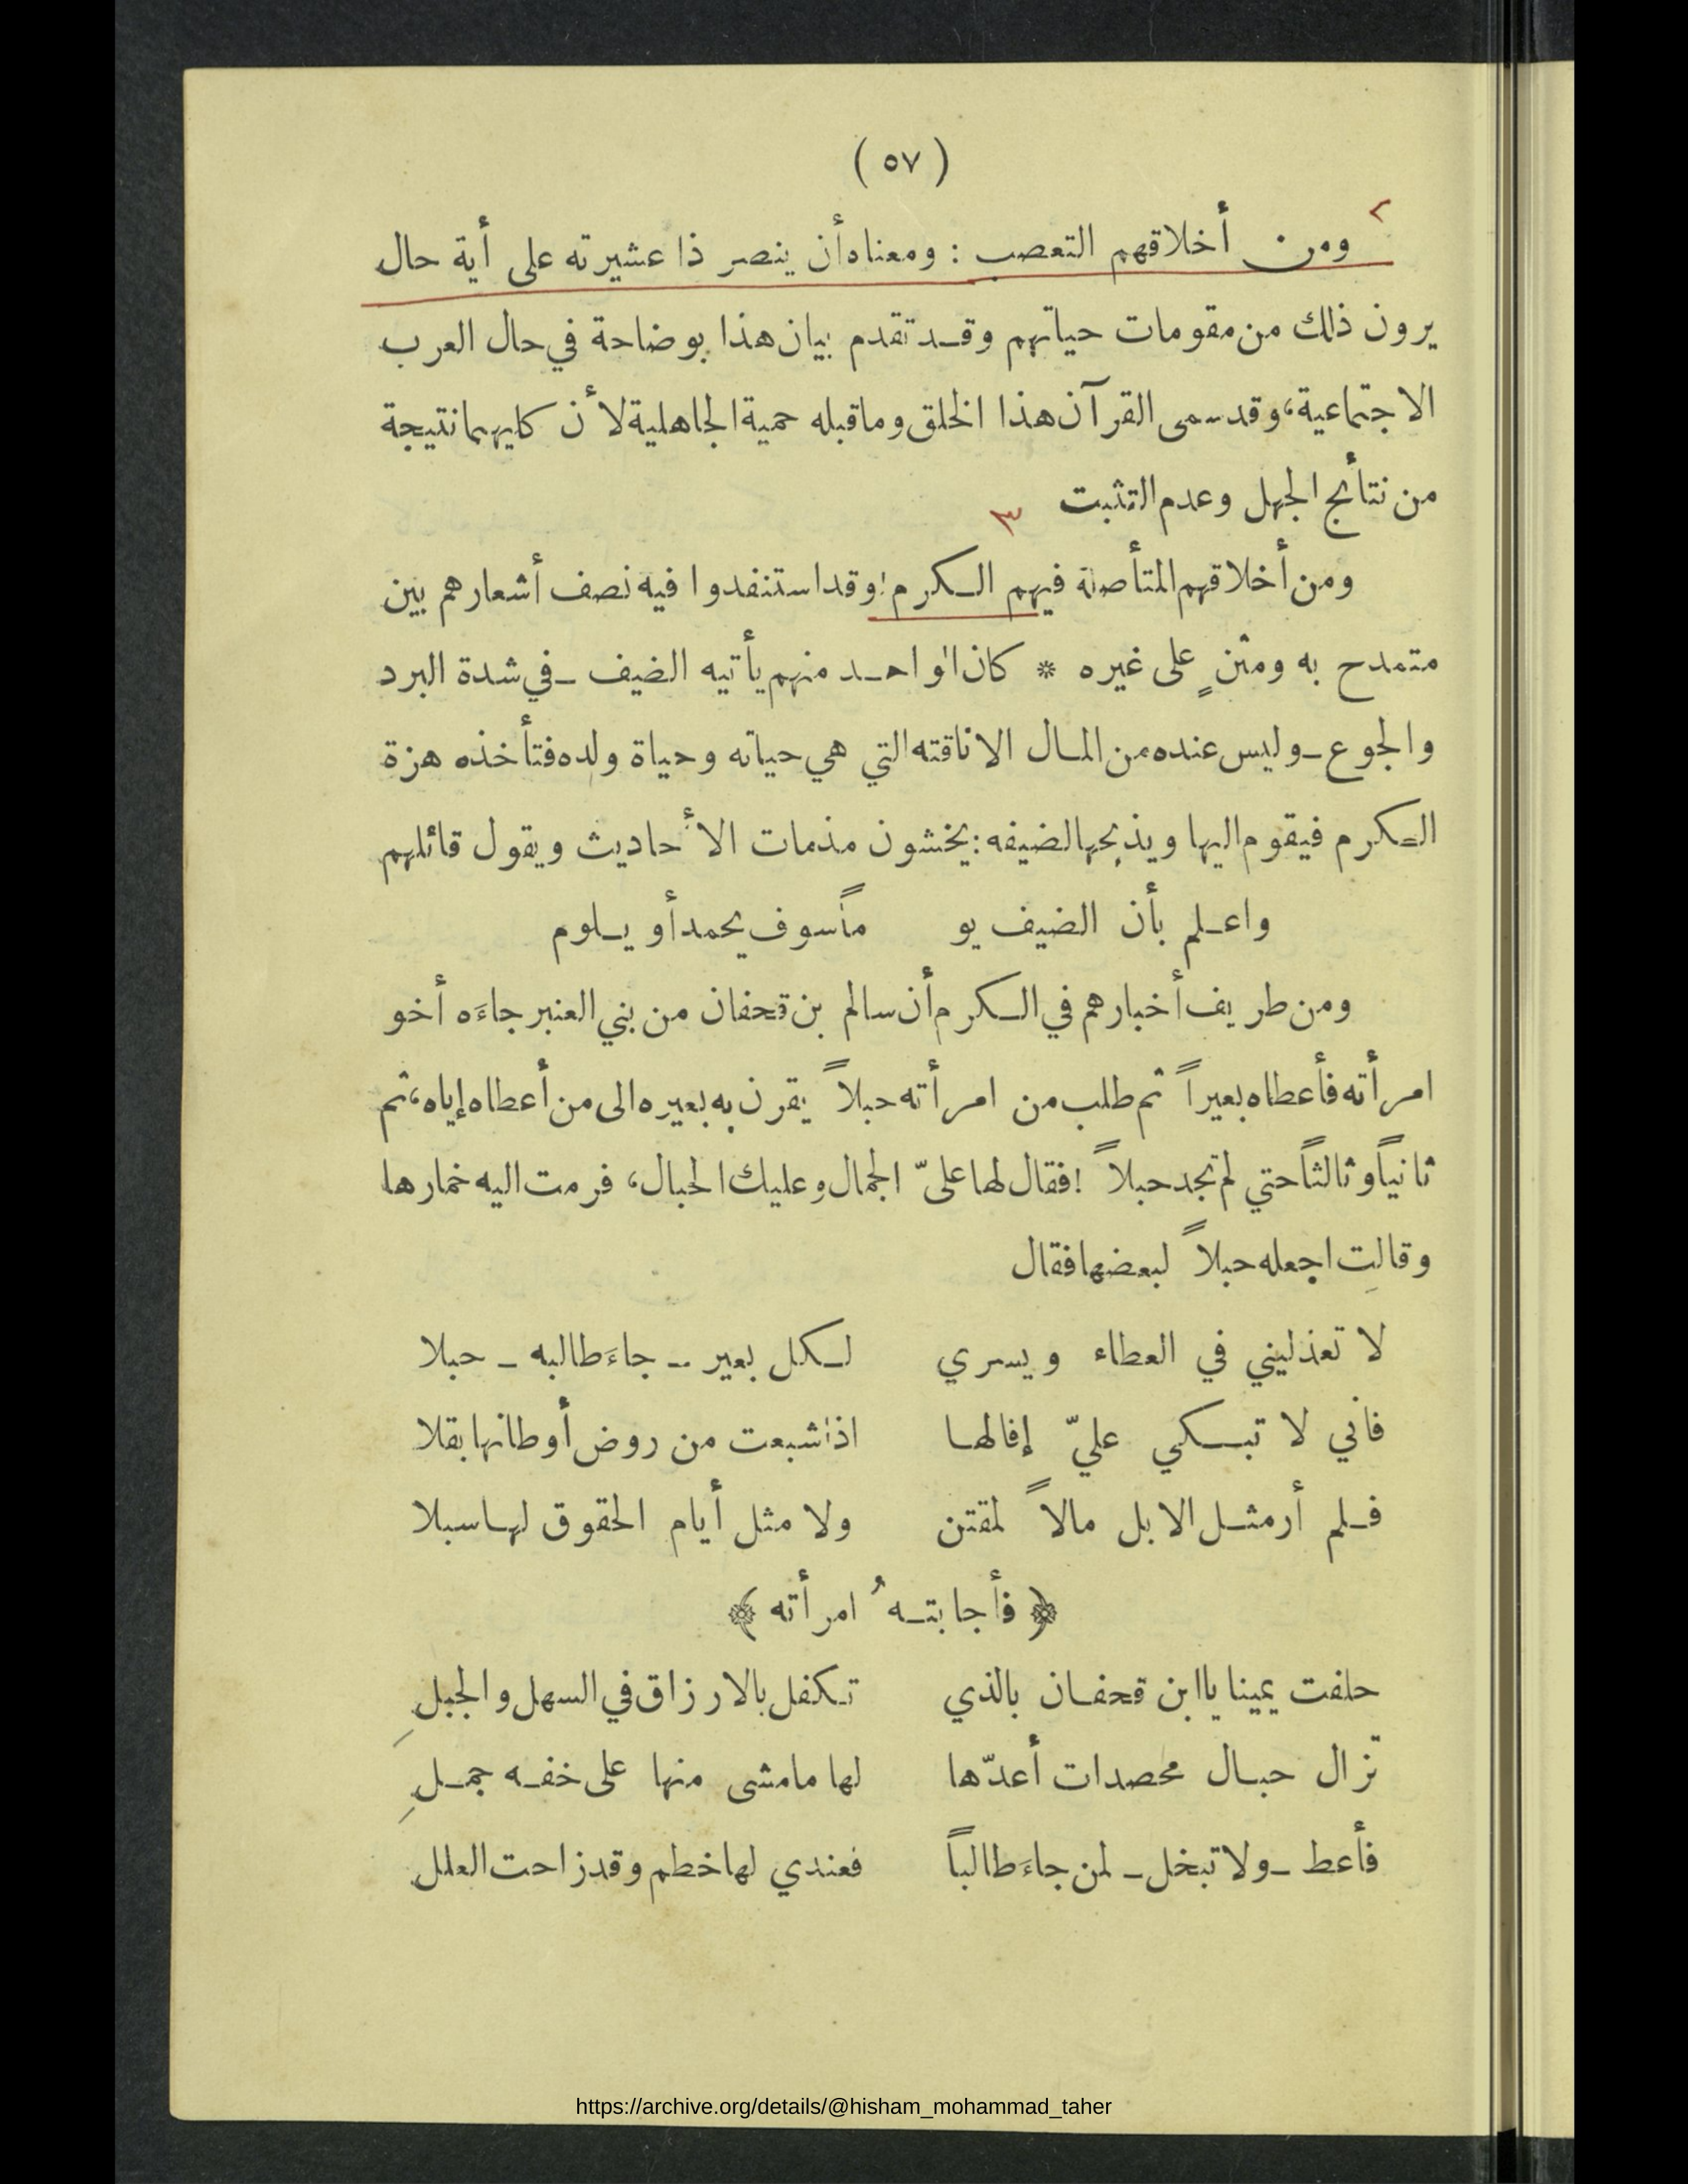 ( ٥٧ )
٢
ومن أخلاقهم التعصب : ومعناه أن ينصر ذا عشيرته على أية حال
يرون ذلك من مقومات حياتهم وقد تقدم بيان هذا بوضاحة في حال العرب
الاجتماعية، وقد سمى القرآن هذا الخلق وما قبله حمية الجاهلية لأن كليهما نتيجة
من نتائج الجهل وعدم التثبت
٣
ومن أخلاقهم المتأصلة فيهم الكرم: وقد استنفدوا فيه نصف أشعارهم بين
متمدح به ومثنٍ على غيره * كان الواحد منهم يأتيه الضيف ـ في شدة البرد
والجوع ـ وليس عنده من المال الا ناقته التي هي حياته وحياة ولده فتأخذه هزة
الكرم فيقوم اليها ويذبحها لضيفه: يخشون مذمات الأحاديث ويقول قائلهم
واعلم بأن الضيف يو ماً سوف يحمد أو يلوم
ومن طريف أخبارهم في الكرم أن سالم بن قحفان من بني العنبر جاءَه أخو
امرأته فأعطاه بعيراً ثم طلب من امرأته حبلاً يقرن به بعيره الى من أعطاه إياه، ثم
ثانياً وثالثاً حتي لم تجد حبلاً ! فقال لها علىّ الجمال وعليك الحبال، فرمت اليه خمارها
وقالت اجعله حبلاً لبعضها فقال
لا تعذليني في العطاء ويسري لكل بعير ـ جاءَ طالبه ـ حبلا
فاني لا تبكي عليّ إفالها اذا شبعت من روض أوطانها بقلا
فلم أر مثل الابل مالاً لمقتن ولا مثل أيام الحقوق لها سبلا
﴿ فأجابتهُ امرأته ﴾
حلفت يمينا ياابن قحفان بالذي تكفل بالارزاق في السهل والجبلِ
تزال حبال محصدات أعدّها لها مامشى منها على خفه جملِ
فأعط ـ ولا تبخل ـ لمن جاءَ طالباً فعندي لها خطم وقد زاحت العلل
https://archive.org/details/@hisham_mohammad_taher